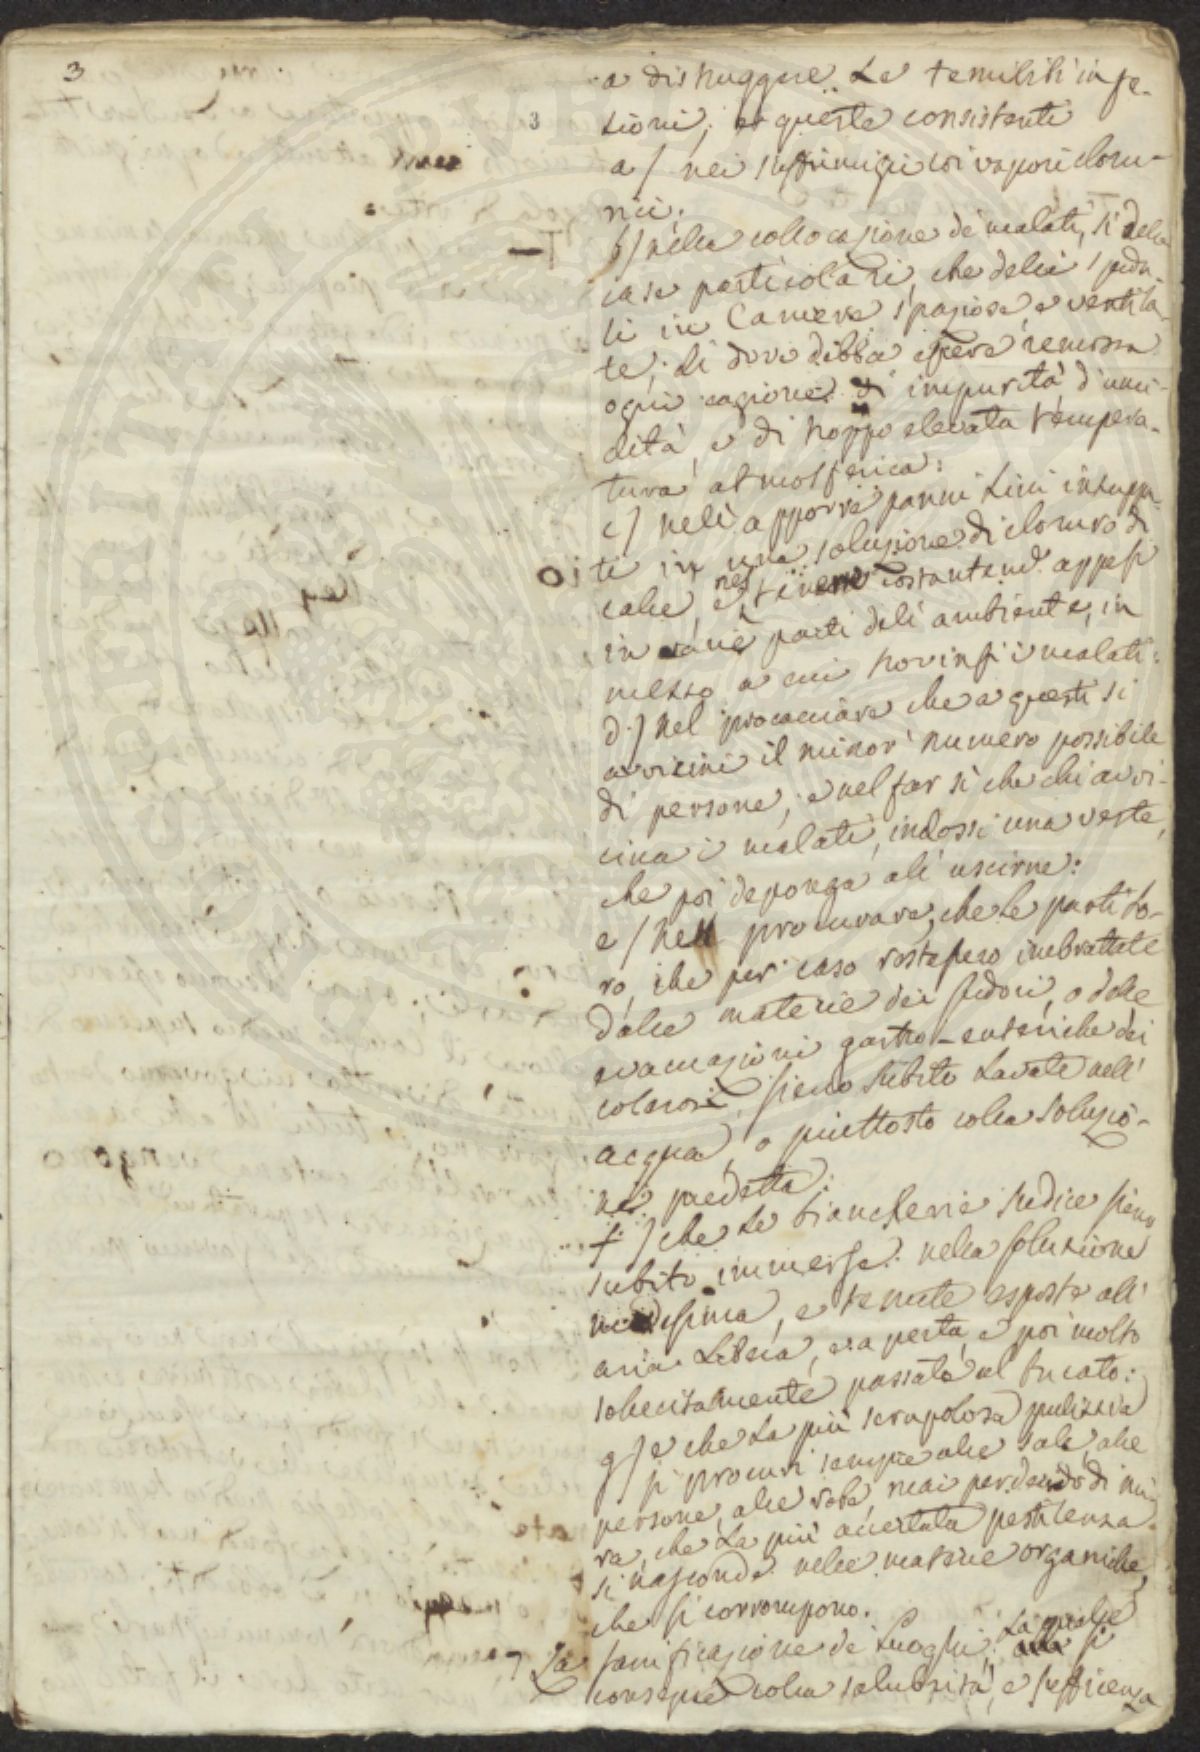 3
3
a distruggere le temibili infe-
zioni; e queste consistenti
a) nei suffumigi coi vapori cloru-
rici:
b) nella collocazione de' malati, sì delle
case particolari, che delli speda-
li in Camere spaziose, e ventila-
te; di dove debba essere remossa
ogni cagione di impurità d'umi-
dità, e di troppo elevata tempera-
tura atmosferica:
c) nell'apporre panni lini inzuppa-
ti in una soluzione di cloruro di
calce, e tenere costantem. appesi
in varie parti dell'ambiente, in
mezzo a cui trovinsi i malati:
d) nel procacciare che a questi si
avvicini il minor numero possibile
di persone, e nel far sì che chi avvi-
cina i malati, indossi una veste,
che poi deponga all'uscirne:
e) nel procurare, che le parti lo-
ro, che per caso restassero imbrattate
dalle materie dei sudori, o delle
evacuazioni gastro-enteriche dei
colerosi, sieno subito lavate nell'
acqua, o piuttosto colla soluzio-
ne predetta:
f) che le biancherie sudice sieno
subito immerse nella soluzione
medesima, e tenute esposte all'
aria libera, e aperta, e poi molto
sollecitamente passate al bucato:
g) e che la più scrupolosa pulizzia
si procuri sempre alle sale, alle
persone, alle robe, mai perdendo di mi
ra, che la più accertata pestilenza
si nasconde nelle materie organiche,
che si corrompono.
7 La sanificazione de' Luoghi; la quale si
consegue colla salubrità, e sufficienza